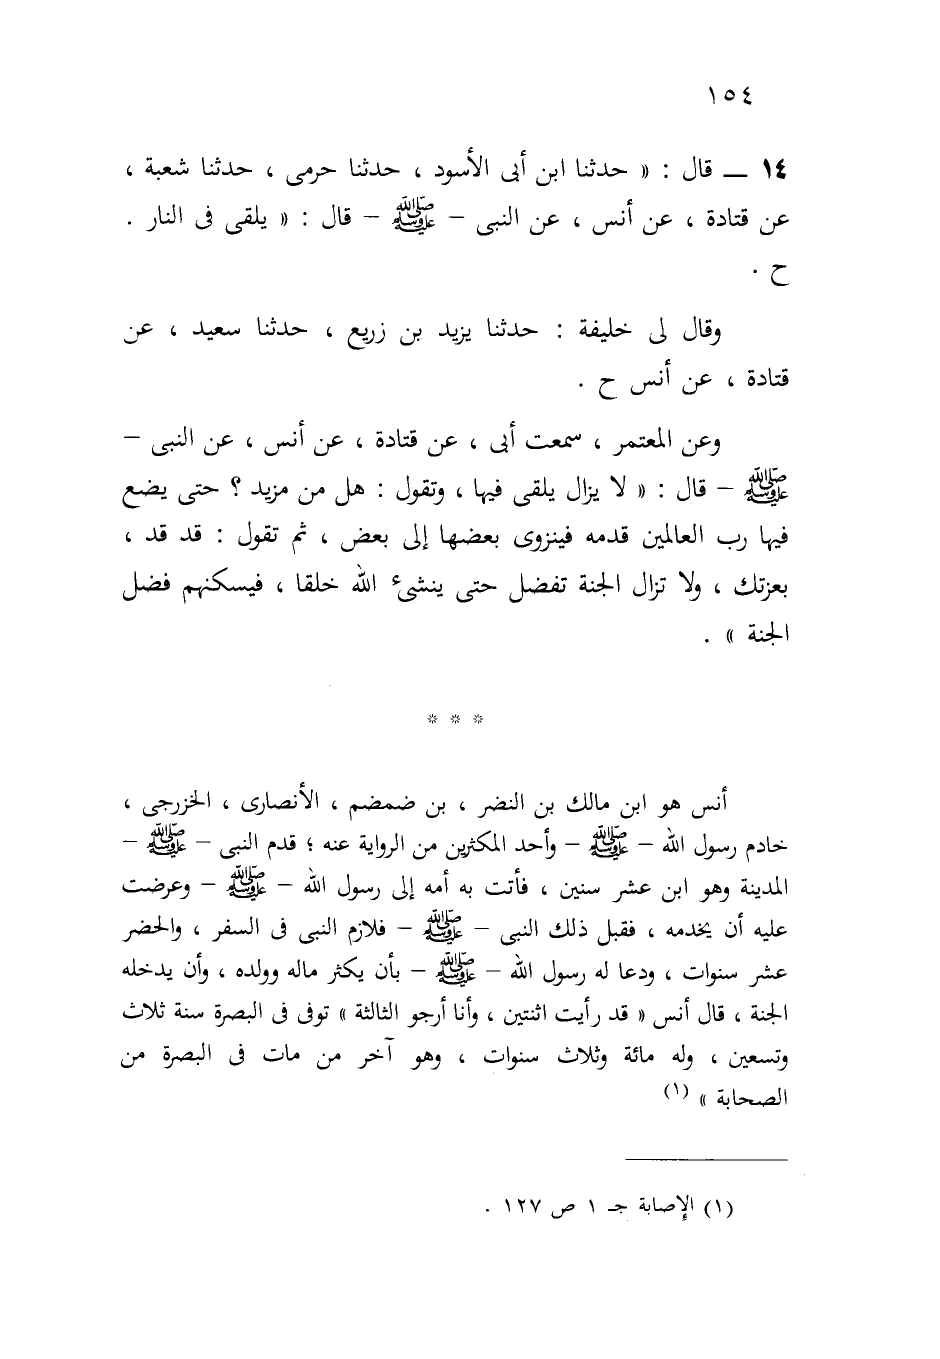 ١٥٤
١٤ ــ قال : « حدثنا ابن أبى الأسود ، حدثنا حرمى ، حدثنا شعبة ،
عن قتادة ، عن أنس ، عن النبى – ﷺ – قال : « يلقى فى النار .
ح .
وقال لى خليفة : حدثنا يزيد بن زريع ، حدثنا سعيد ، عن
قتادة ، عن أنس ح .
وعن المعتمر ، سمعت أبى ، عن قتادة ، عن أنس ، عن النبى –
ﷺ – قال : « لا يزال يلقى فيها ، وتقول : هل من مزيد ؟ حتى يضع
فيها رب العالمين قدمه فينزوى بعضها إلى بعض ، ثم تقول : قد قد ،
بعزتك ، ولا تزال الجنة تفضل حتى ينشئ الله خلقا ، فيسكنهم فضل
الجنة » .
* * *
أنس هو ابن مالك بن النضر ، بن ضمضم ، الأنصارى ، الخزرجى ،
خادم رسول الله – ﷺ – وأحد المكثرين من الرواية عنه ؛ قدم النبى – ﷺ –
المدينة وهو ابن عشر سنين ، فأتت به أمه إلى رسول الله – ﷺ – وعرضت
عليه أن يخدمه ، فقبل ذلك النبى – ﷺ – فلازم النبى فى السفر ، والحضر
عشر سنوات ، ودعا له رسول الله – ﷺ – بأن يكثر ماله وولده ، وأن يدخله
الجنة ، قال أنس « قد رأيت اثنتين ، وأنا أرجو الثالثة » توفى فى البصرة سنة ثلاث
وتسعين ، وله مائة وثلاث سنوات ، وهو آخر من مات فى البصرة من
الصحابة » (١)
(١) الإصابة جـ ١ ص ١٢٧ .